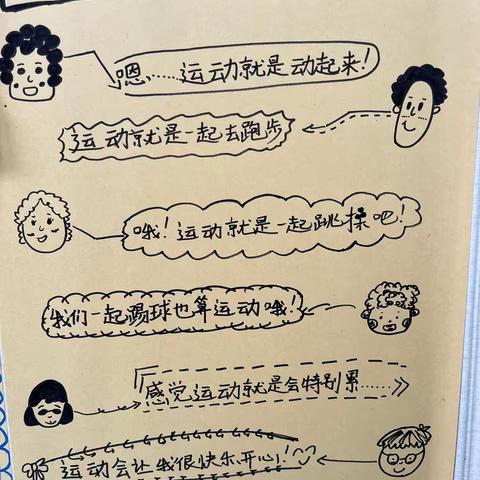 嗯……运动就是动起来！
运动就是一起去跑步
哦！运动就是一起跳操吧！
我们一起玩球也算运动哦！
感觉运动就是会特别累……
运动会让我很快乐、开心！